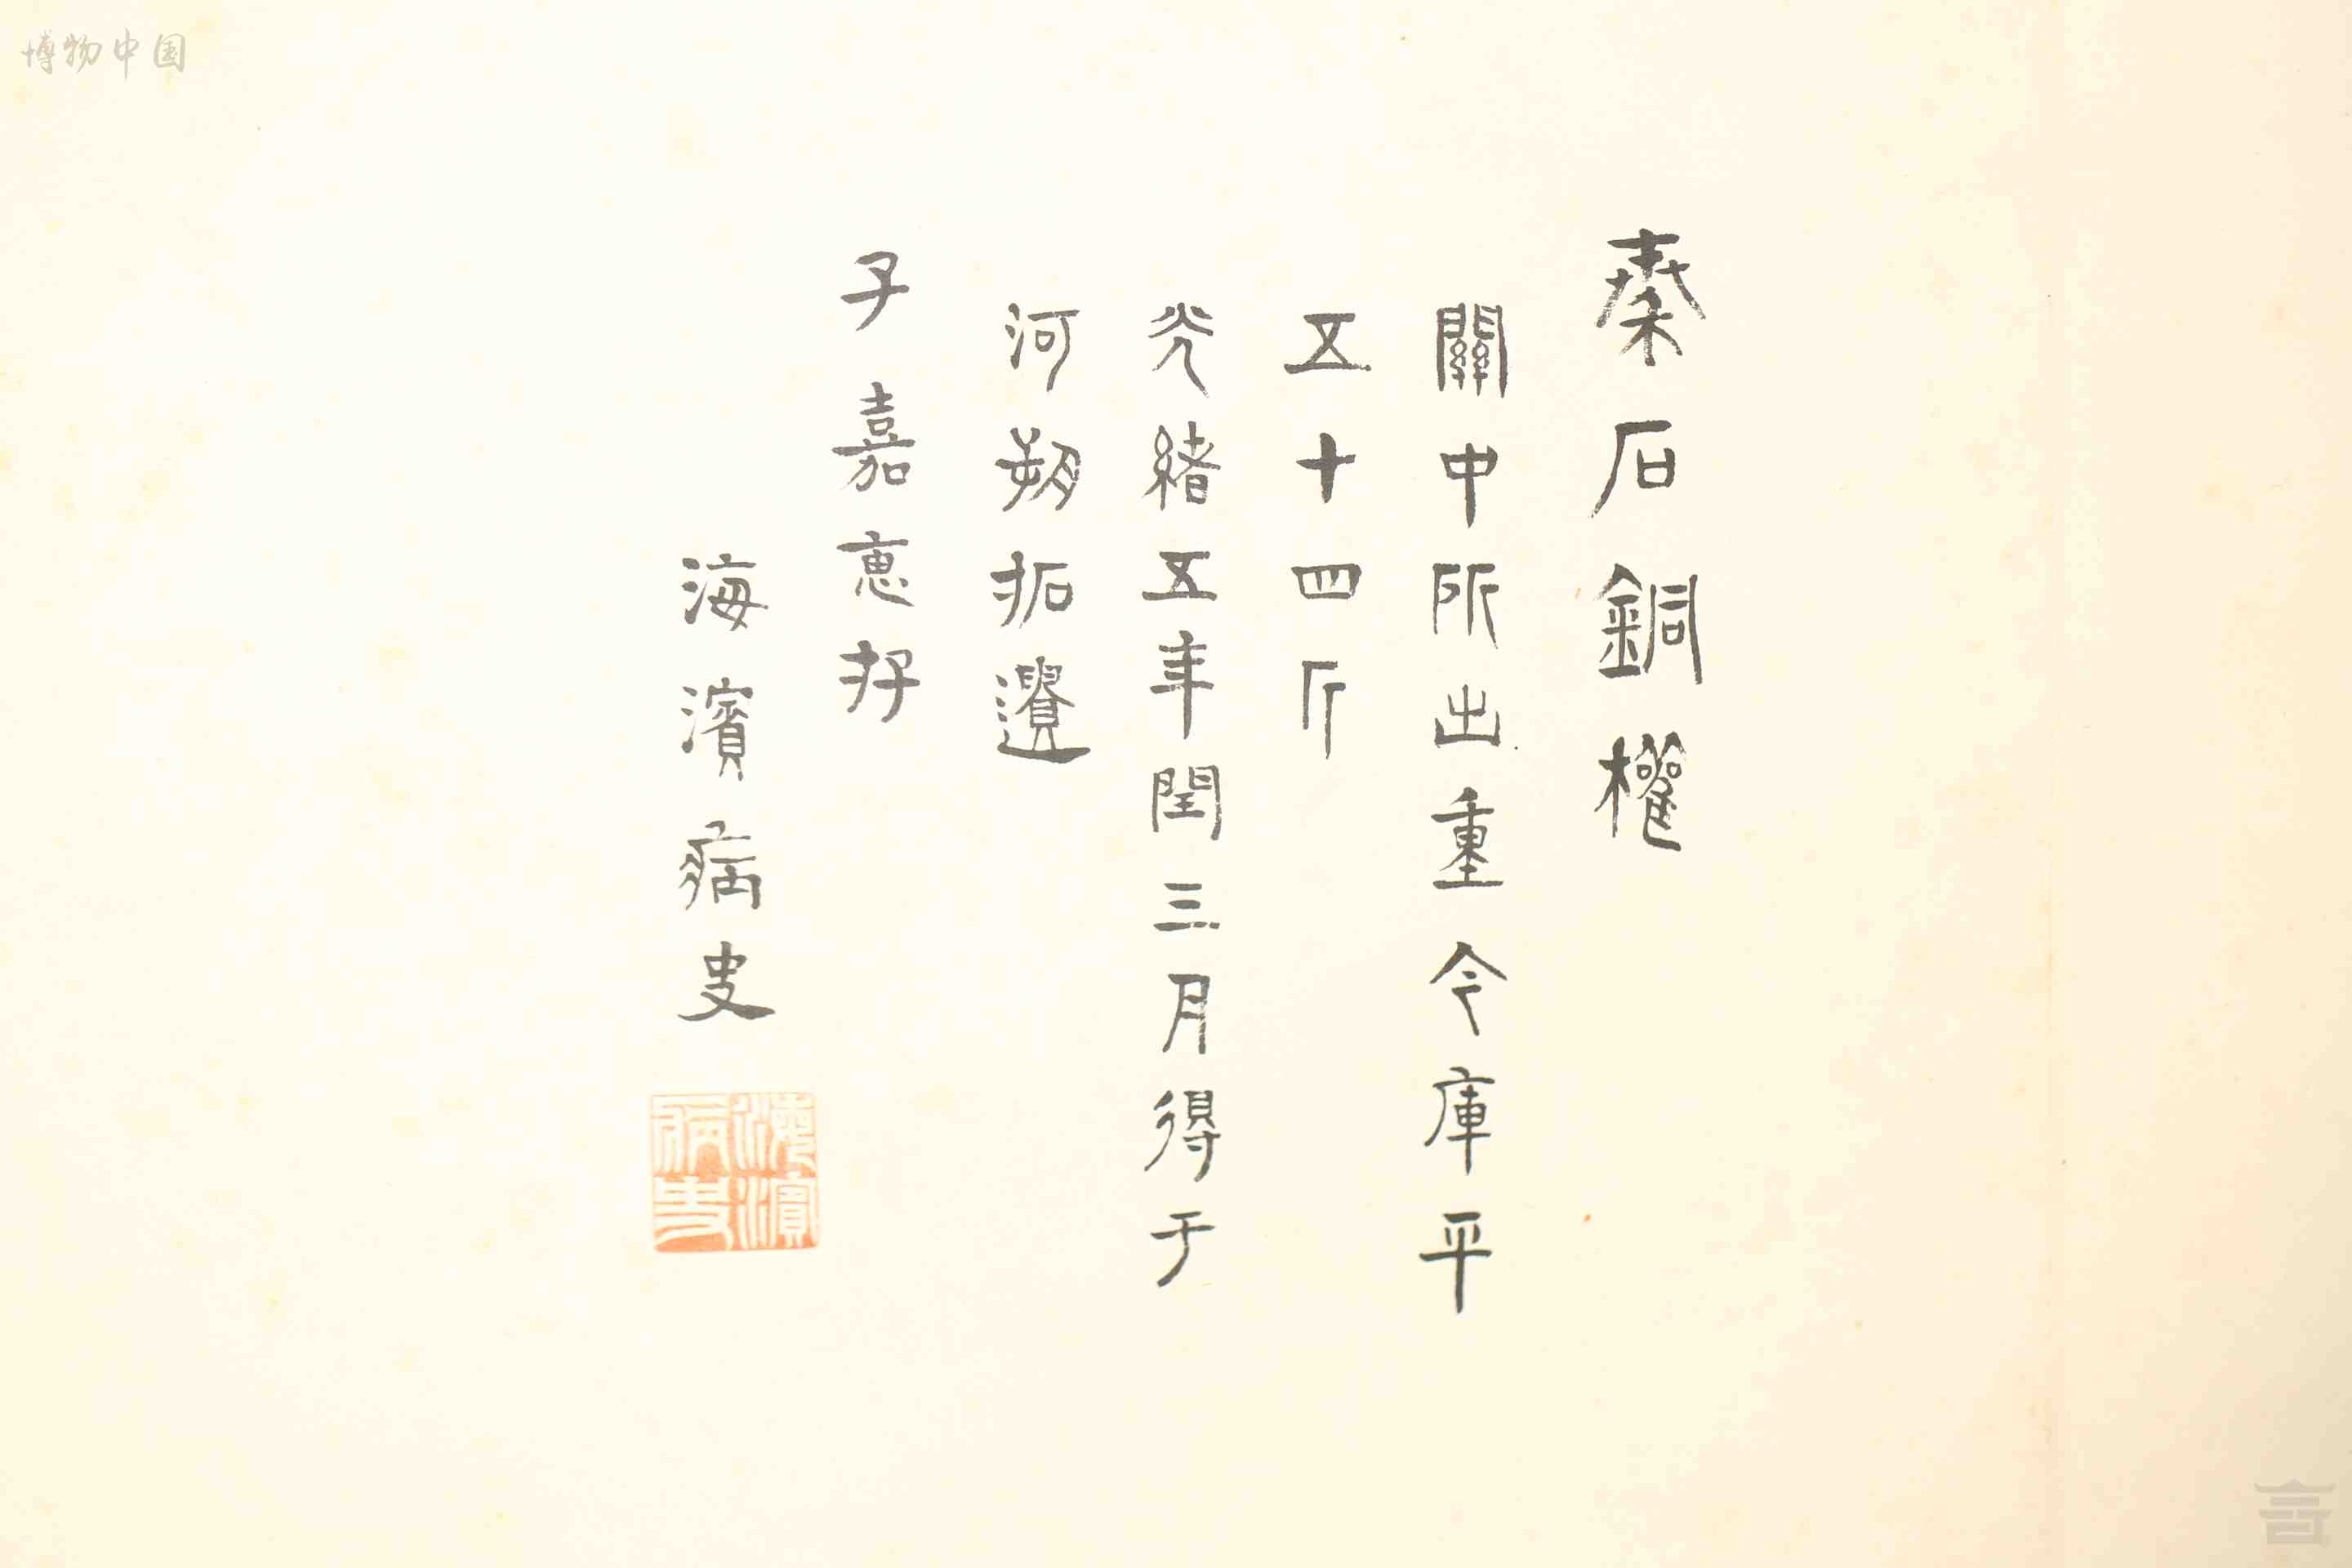 秦石銅權
關中所出重今庫平
五十四斤
光緒五年閏三月得于
河朔拓遺
子嘉惠存
海濱病史
海濱
病史
博物中国